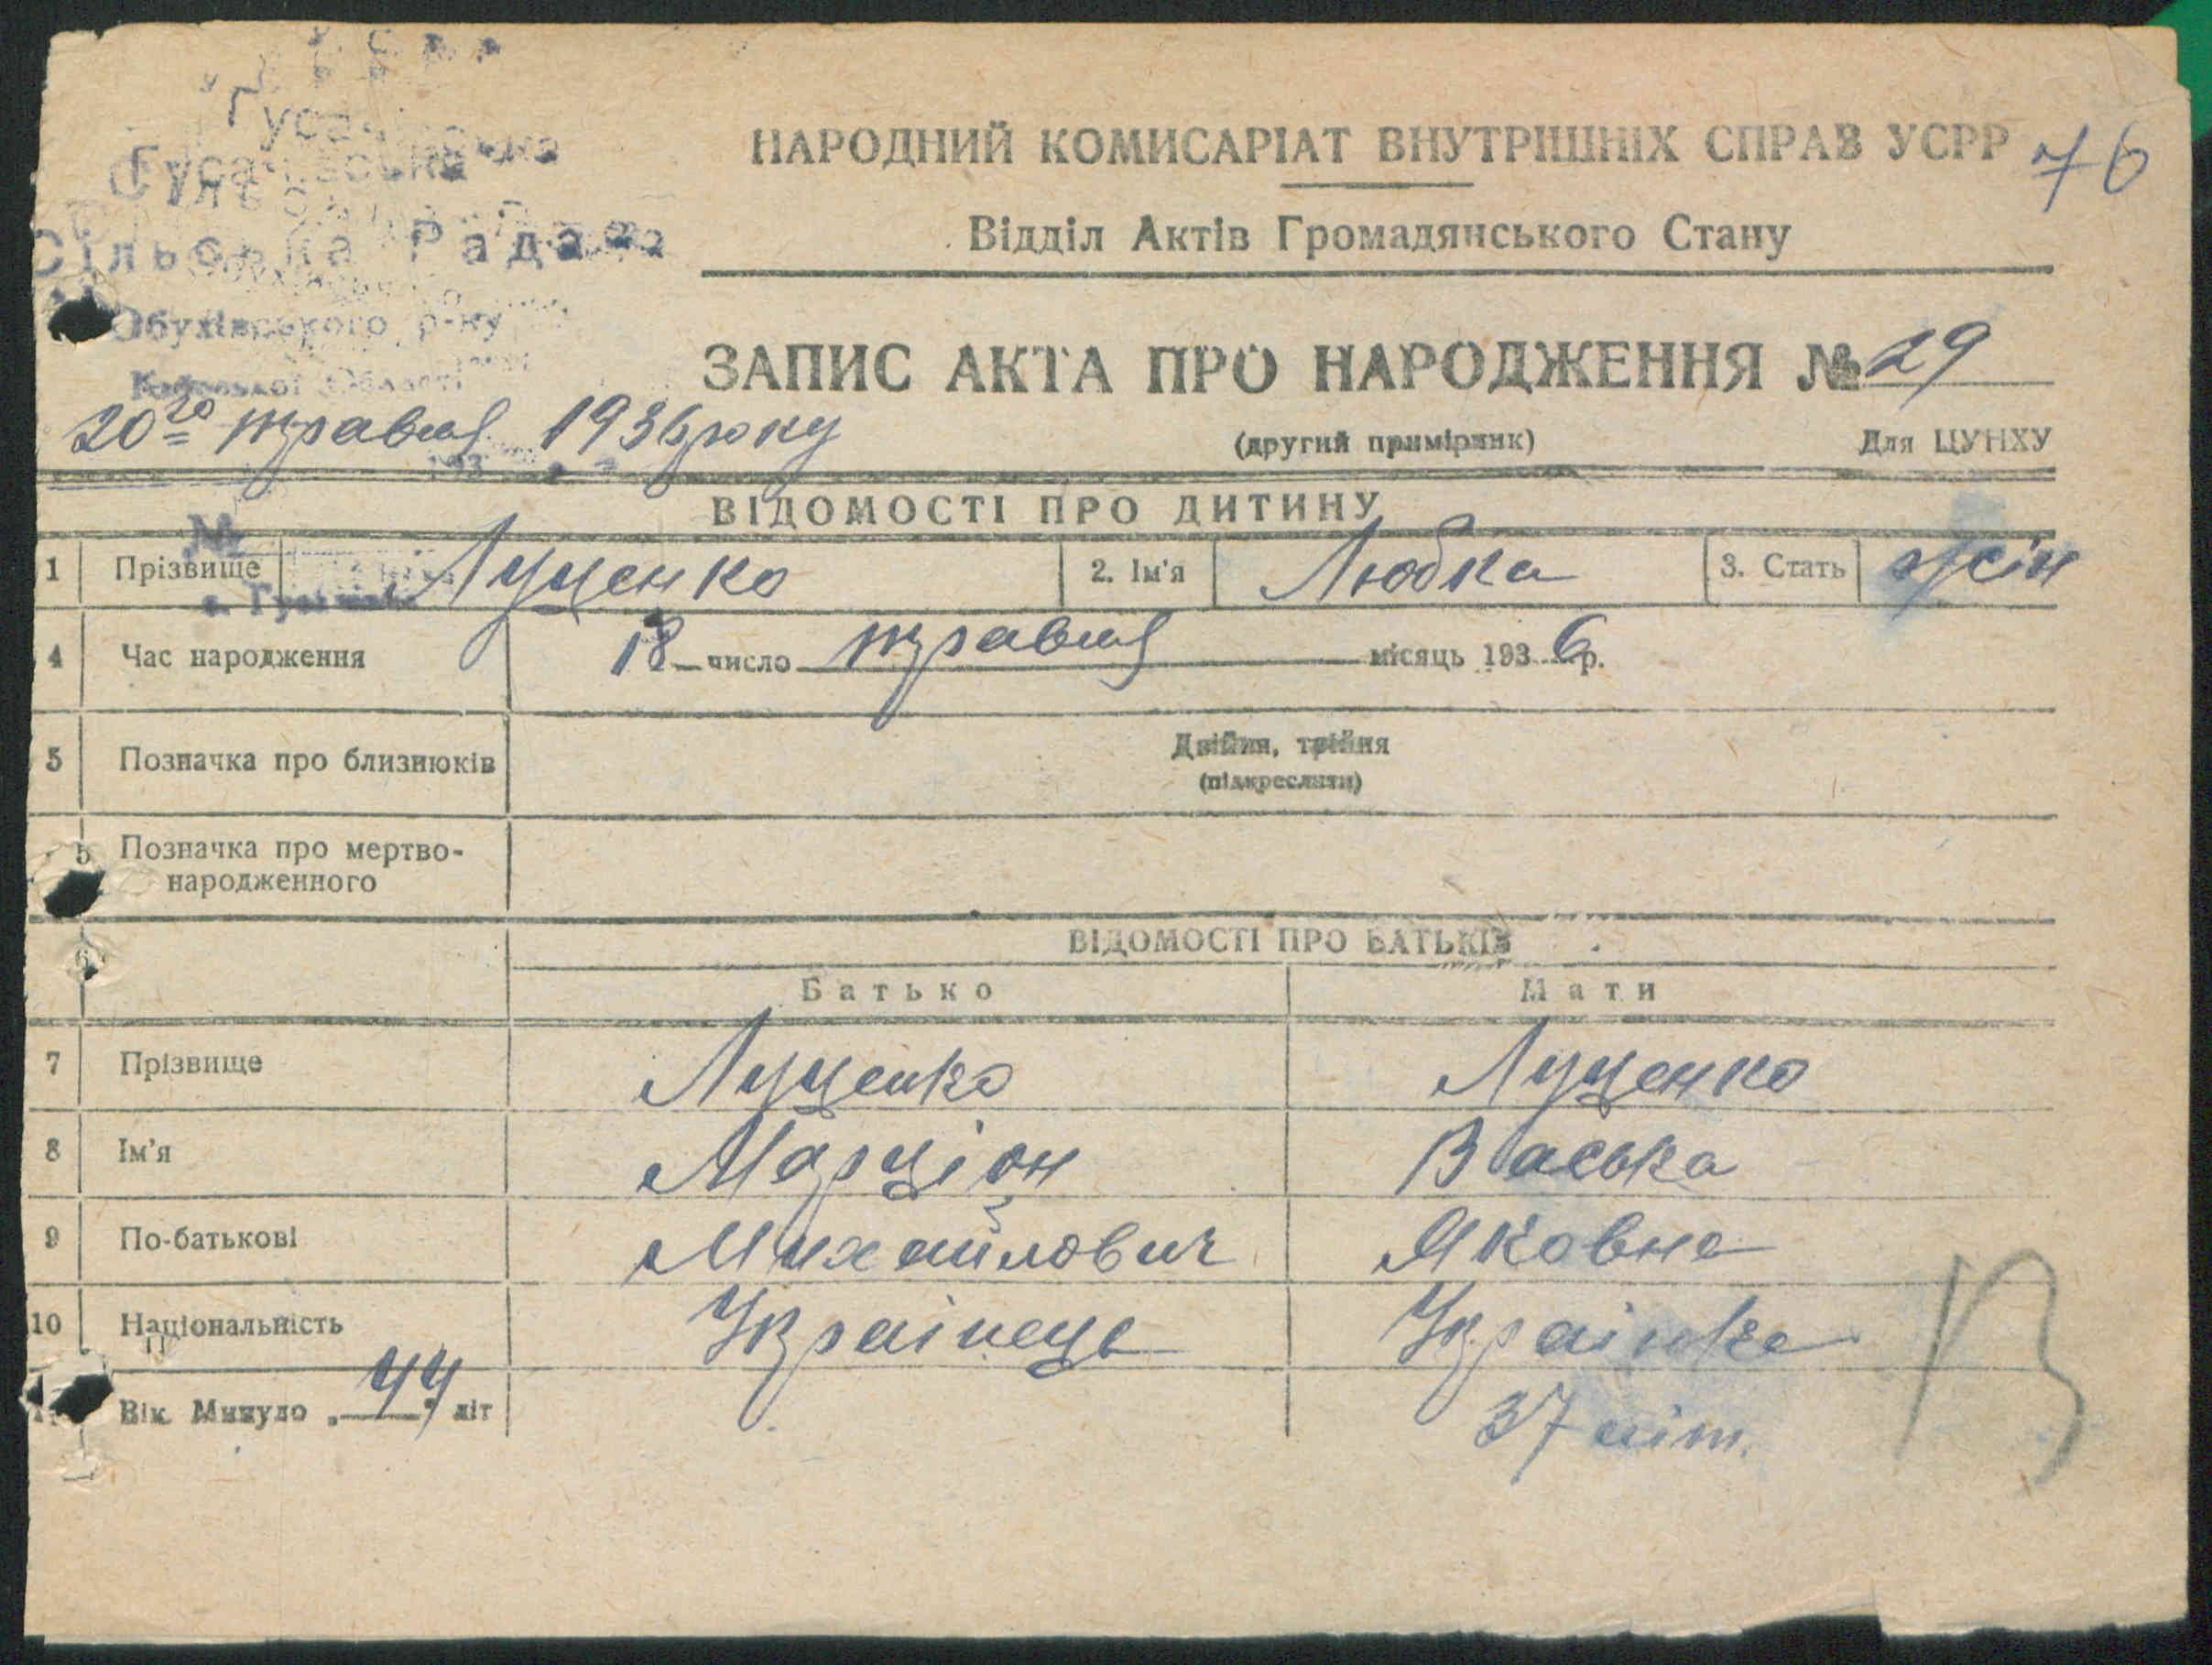 Гусачівська
Сільська Рада
Обухівського р-ну
Київської Області
НАРОДНИЙ КОМИСАРІАТ ВНУТРІШНІХ СПРАВ УСРР 76
Відділ Актів Громадянського Стану
ЗАПИС АКТА ПРО НАРОДЖЕННЯ № 29
20го травня 1936 року
(другий примірник) Для ЦУНХУ
ВІДОМОСТІ ПРО ДИТИНУ
№
1 Прізвище Луценко 2. Ім'я Любка 3. Стать жін
4 Час народження 18 число травня місяць 1936 р.
5 Позначка про близнюків Двійня, трійня
(підкреслити)
Позначка про мертво-
народженного
6 ВІДОМОСТІ ПРО БАТЬКІВ
Батько Мати
7 Прізвище Луценко Луценко
8 Ім'я Марціон Васька
9 По-батькові Михайлович Яковна
10 Національність Українець Українка
Вік. Минуло „44" літ 37 літ.